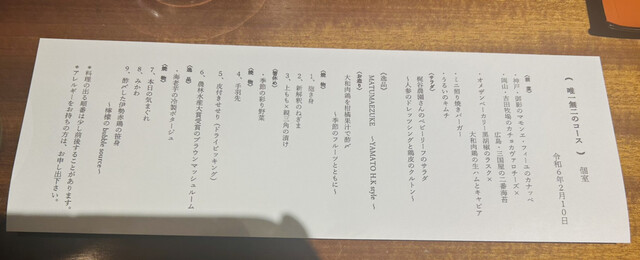 《 唯一無二のコース 》 個室
令和6年2月10日
(前菜)
・神戸・弼彰のマモンエ・フィーユのカナッペ
・岡山・吉田牧場のカチョカヴァロチーズ×
広島・三国屋の二番海苔
・オメザベーカリー黒胡椒のラスク×
大和肉鶏の生ハムとキャビア
・ミニ照り焼きバーガー
・うるいのキムチ
(サラダ)
梶谷農園さんのベビーリーフのサラダ
～人参のドレッシングと鶏皮のクルトン～
(逸品)
MATUMAEZUKE ～YAMATO H.K style～
(お造り)
大和肉鶏を柑橘果汁で酢〆
～季節のフルーツとともに～
(焼物)
1、抱き身
2、新解釈のねぎま
3、上もも×親三角の漬け
(箸休め)
・季節の彩り野菜
(焼物)
4、手羽先
5、皮付きせせり(ドライピッキング)
6、農林水産大臣賞受賞のブラウンマッシュルーム
(逸品)
・海老芋の冷製ポタージュ
(焼物)
7、本日の気まぐれ
8、みかわ
9、酢〆した伊勢赤鶏の笹身
～檸檬の bubble source～
＊料理の出る順番は少し前後することがあります。
＊アレルギーをお持ちの方は、お申し出下さい。